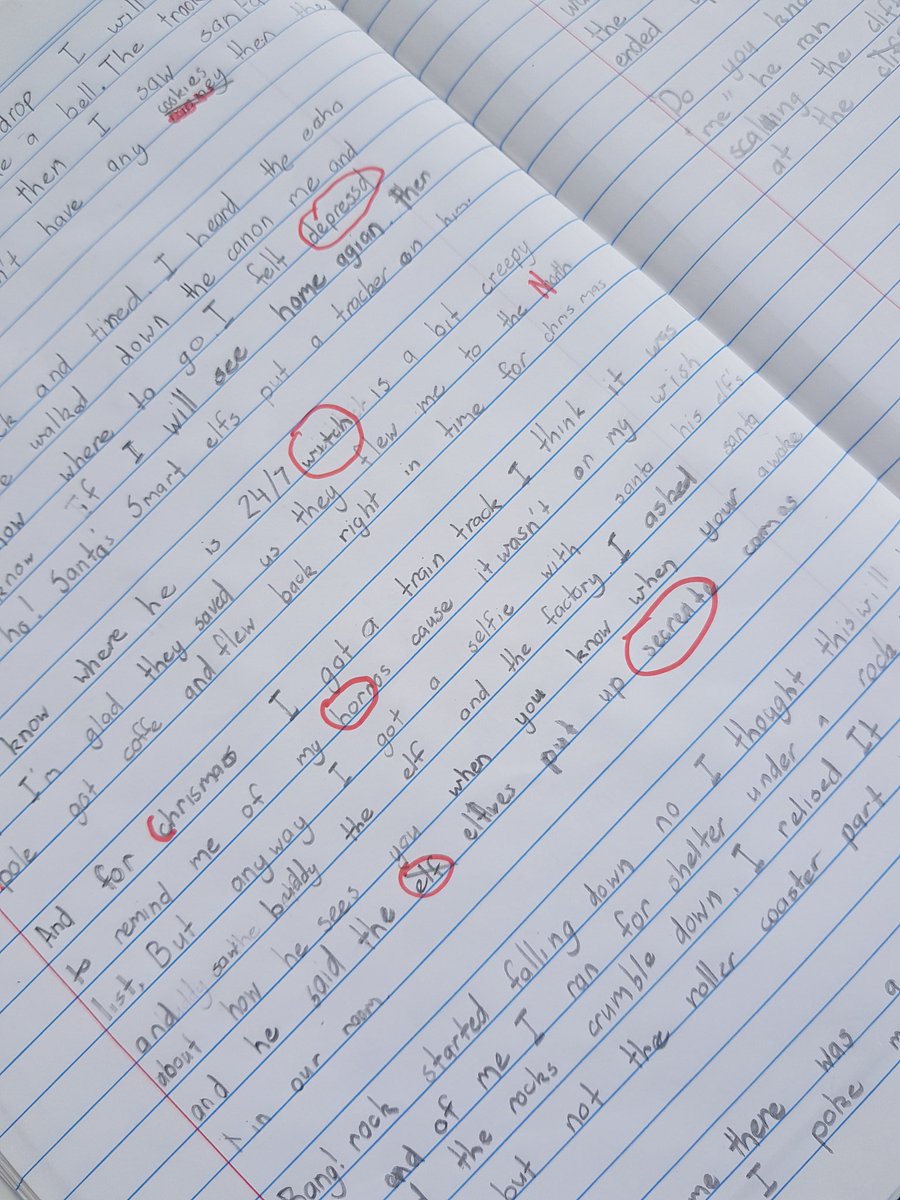 drop I will
a bell. The
then I saw santa
n't have any cookies then the
and tired. I heard the echo
walkd down the canon me and
now where to go. I felt depressd
know if I will see home agian. then
ho! Santa's Smart elfs put a tracber on him.
know where he is 24/7 witch is a bit creepy
I'm glad they saved us they flew me to the North
pole got coffe and flew back right in time for chrismas
And for Chrismas I got a train track I think it was
to remind me of my horros cause it wasn't on my wish
list. But anyway I got a selfie with santa his elfs
and buddy the elf and the factory. I asked santa
about how he sees you when you know when your awake
and he said the elf eltives put up secrente camas
in our room
Bang! rock started falling down no I thought this will
end of me I ran for shelter under a rock
the rocks crumble down. I relised It
but not the roller coaster part
me there was a
I poke
the
ended
"Do you kno
me" he ran
scalling the clif
at the